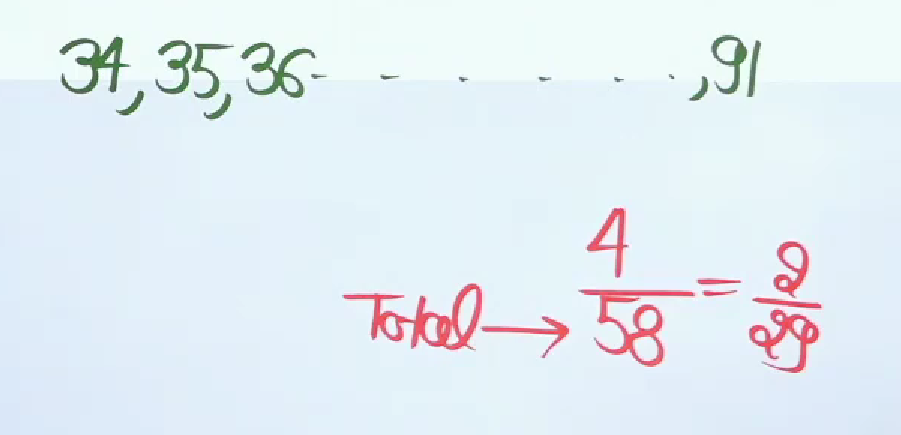 34, 35, 36 - - . . . . . , 91
Total → 4/58 = 2/29